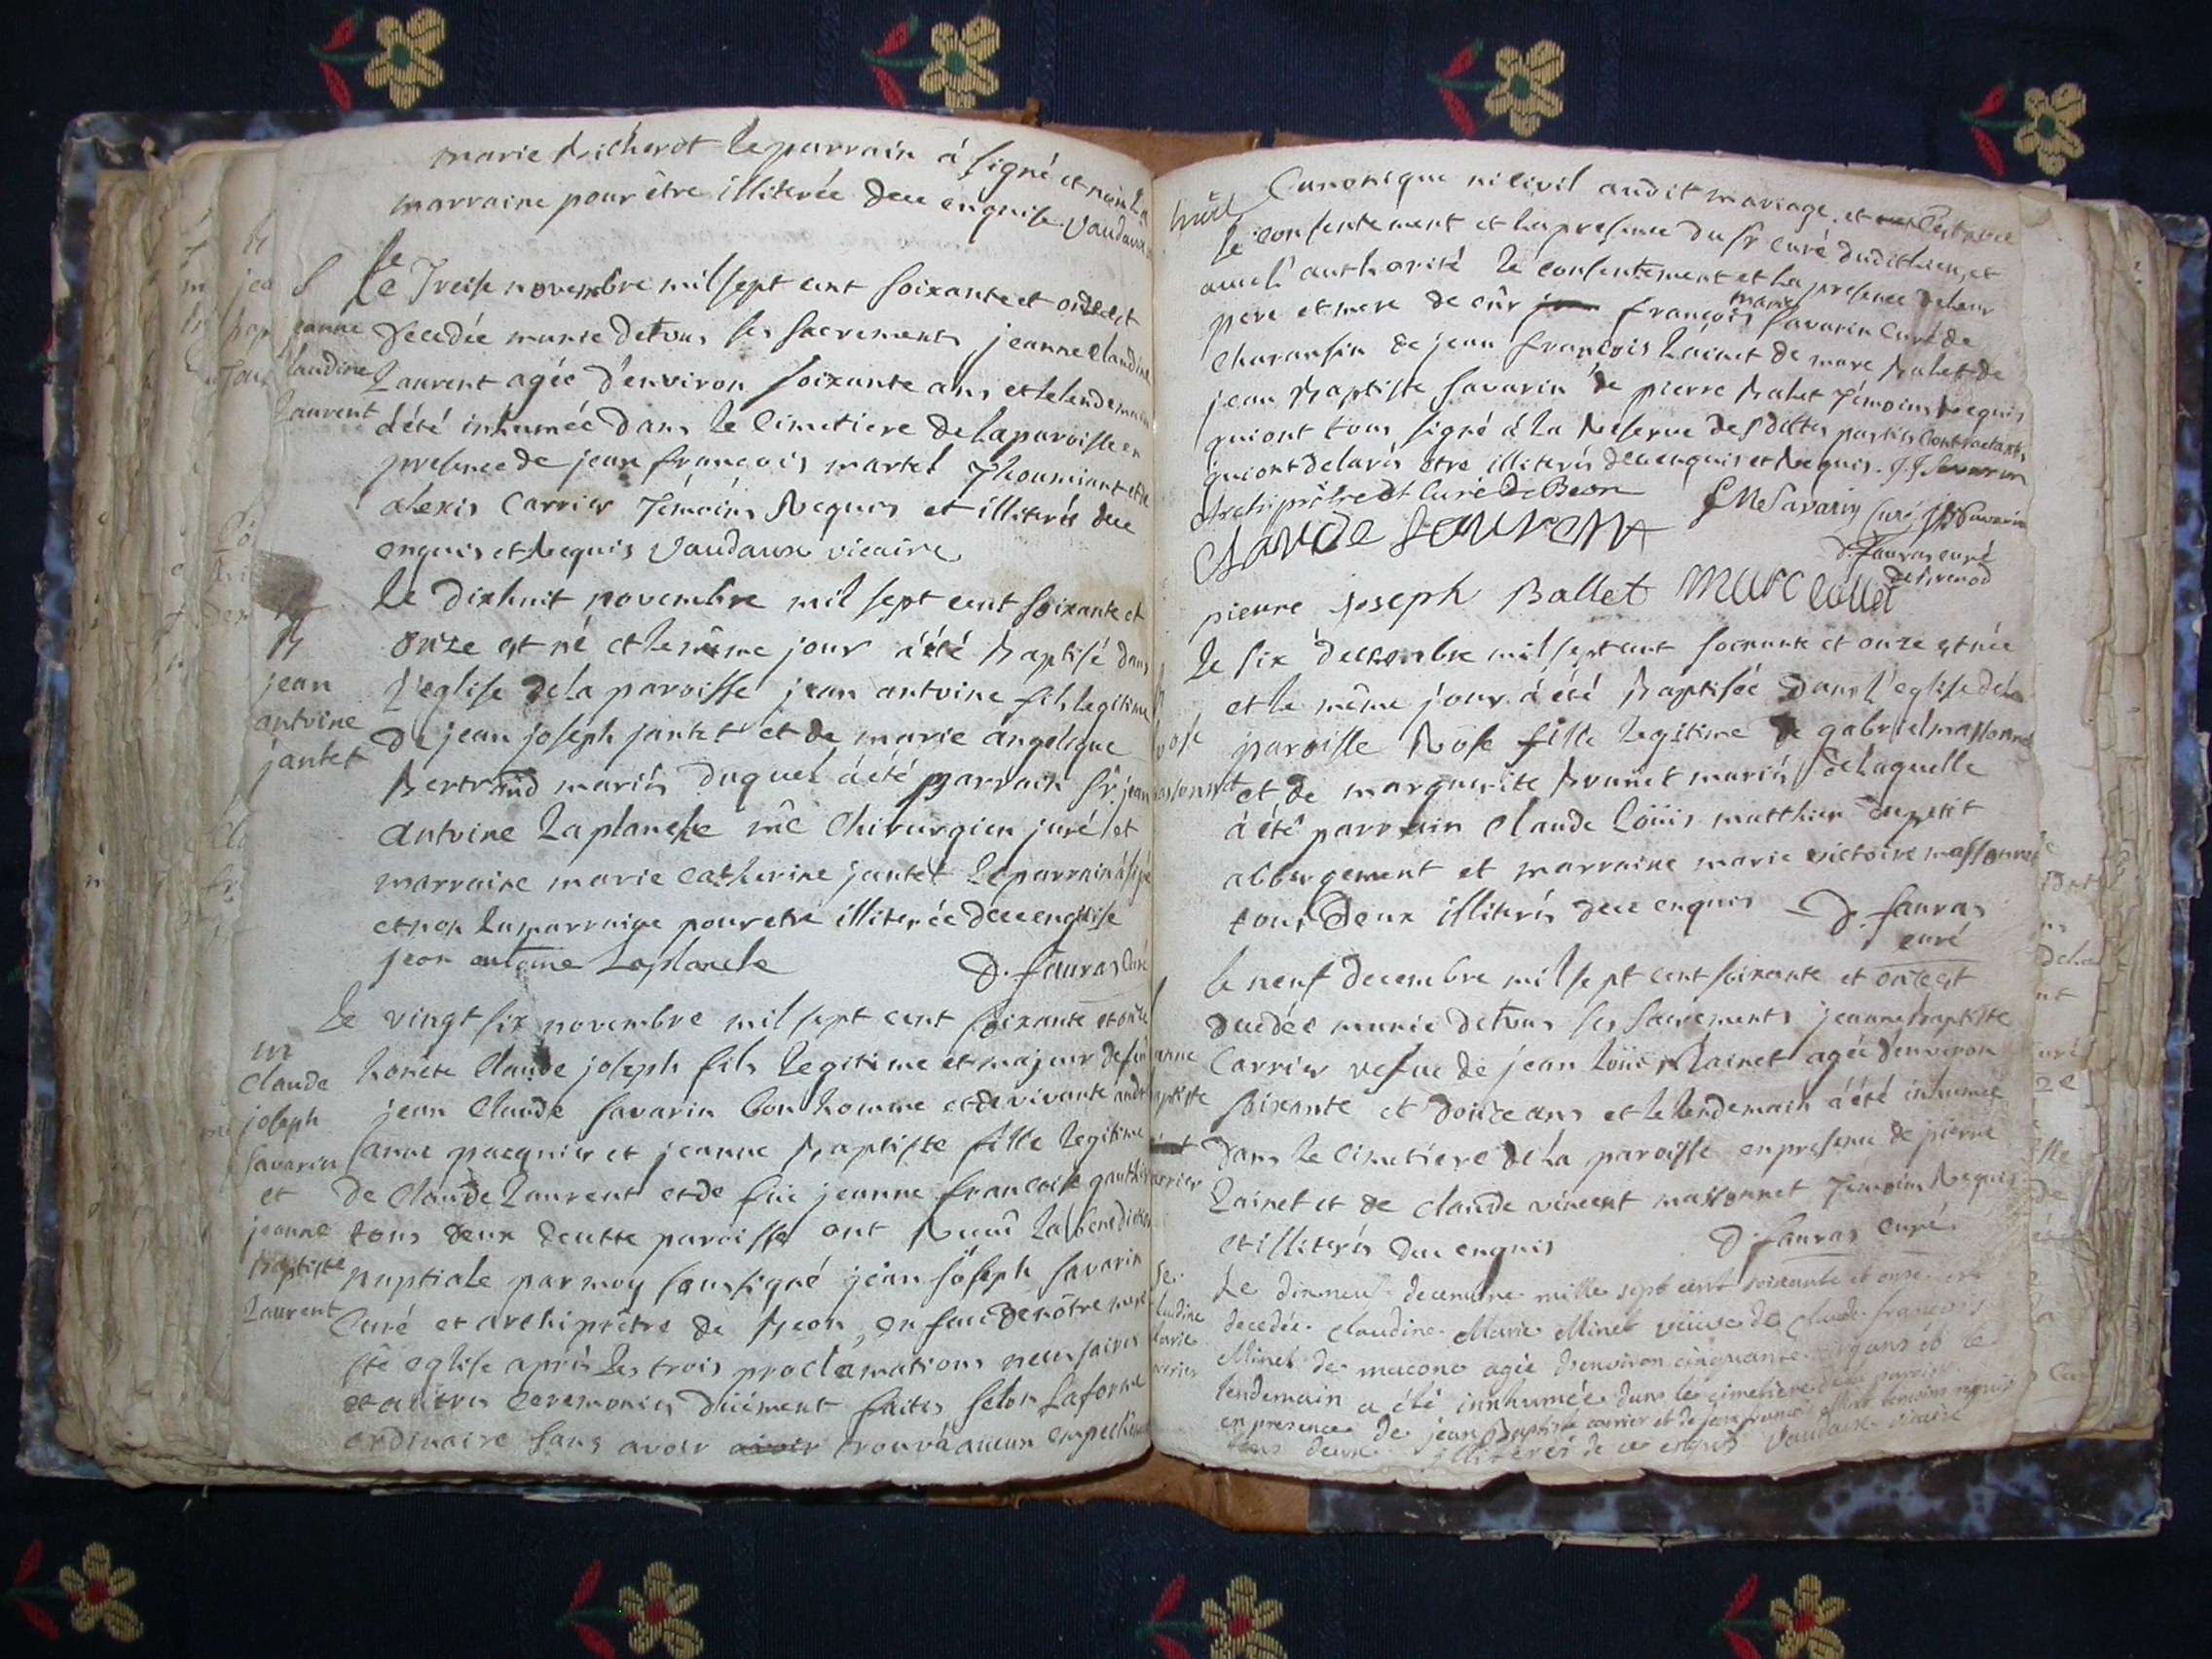 marie Richerot le parrain à signé et non la
marraine pour être illiterée de ce enquise Vaudaux
S
jeanne
claudine
Laurent
le
Le Treise novembre mil sept cent soixante et onze est
decedée munie de tous ses sacrements jeanne claudine
Laurent agée d'environ soixante ans et le lendemain
à été inhumée dans le cimetiere de la paroisse en
presence de jean francois martel et de
alexis Carrier Témoins Requis et illiterés de ce
enquis et Requis Vaudaux vicaire
B
jean
antoine
jantet
Le dixhuit novembre mil sept cent soixante et
onze est né et le même jour à été Baptisé dans
l'eglise de la paroisse jean antoine fils legitime
de jean joseph jantet et de marie angelique
Bertrand mariés duquel à été parrain Sr. jean
antoine Laplanche me Chirurgien juré et
marraine marie catherine jantet Le parrain à signé
et non la marraine pour etre illiterée de ce enquise
jean antoine Laplanche D. fauras curé
m
Claude
joseph
Savarin
et
jeanne
Baptiste
Laurent
Le vingt six novembre mil sept cent soixante et onze
honête Claude joseph fils legitime et majeur de feu
jean Claude Savarin bon homme et de vivante
anne pacquier et jeanne Baptiste fille legitime
de Claude Laurent et de füe jeanne francoise gauthier
tous deux de cette paroisse ont Recu la benediction
nuptiale par moy soussigné jean joseph Savarin
Curé et archiprêtre de Beon, en face de nôtre mere
Ste eglise après les trois proclamations necessaires
et autres ceremonies düement faites selon la forme
ordinaire sans avoir avoir trouvé aucun empechement
Canonique ni civil audit mariage, et
le consentement et la presence du Sr curé dudit lieu, et
avec l'authorité le consentement et la presence de leur
pere et mere de Sr françois marie Savarin Curé de
Charansin de jean françois Lainet de marc Balet de
jean Baptiste Savarin de pierre Balet Témoins Requis
qui ont tous signé à la Reserve des dittes parties Contractantes
qui ont declarés être illiterés de ce enquis et Requis. J. J. Savarin
Archiprêtre et Curé de Beon F M Savarin Curé JB Savarin
Claude Lourent D. fauras curé
pierre joseph Ballet Marc Collet
Rose
massonnet
Le six decembre mil sept cent soixante et onze est née
et le même jour à été Baptisée dans l'eglise de la
paroisse Rose fille legitime de gabriel massonnet
et de marguerite Brunet mariés de laquelle
à été parrain Claude Loüis matthieu du petit
abbergement et marraine marie victoire massonnet
tous Deux illiterés de ce enquis D. fauras
curé
jeanne
Baptiste
Carrier
le neuf decembre mil sept cent soixante et onze est
decedée munie de tous ses sacrements jeanne Baptiste
Carrier vefue de jean loüis Lainet agée d'environ
soixante et douze ans et le lendemain à été inhumée
dans le cimetiere de la paroisse en presence de pierre
Lainet et de claude vincent massonnet Témoins Requis
et illiterés de ce enquis D. fauras curé.
Claudine
Marie
Le dixneuf decembre mille sept cent soixante et onse est
decedée claudine Marie Minet veüve de Claude françois
Minet de macono agée d'environ cinquante cinq ans et le
lendemain a été innhumée dans le cimetiere de la paroisse
en presence de jean Baptiste carrier et de jean françois Minet temoins requis
tous deux illiterés de ce enquis Vaudaux vicaire